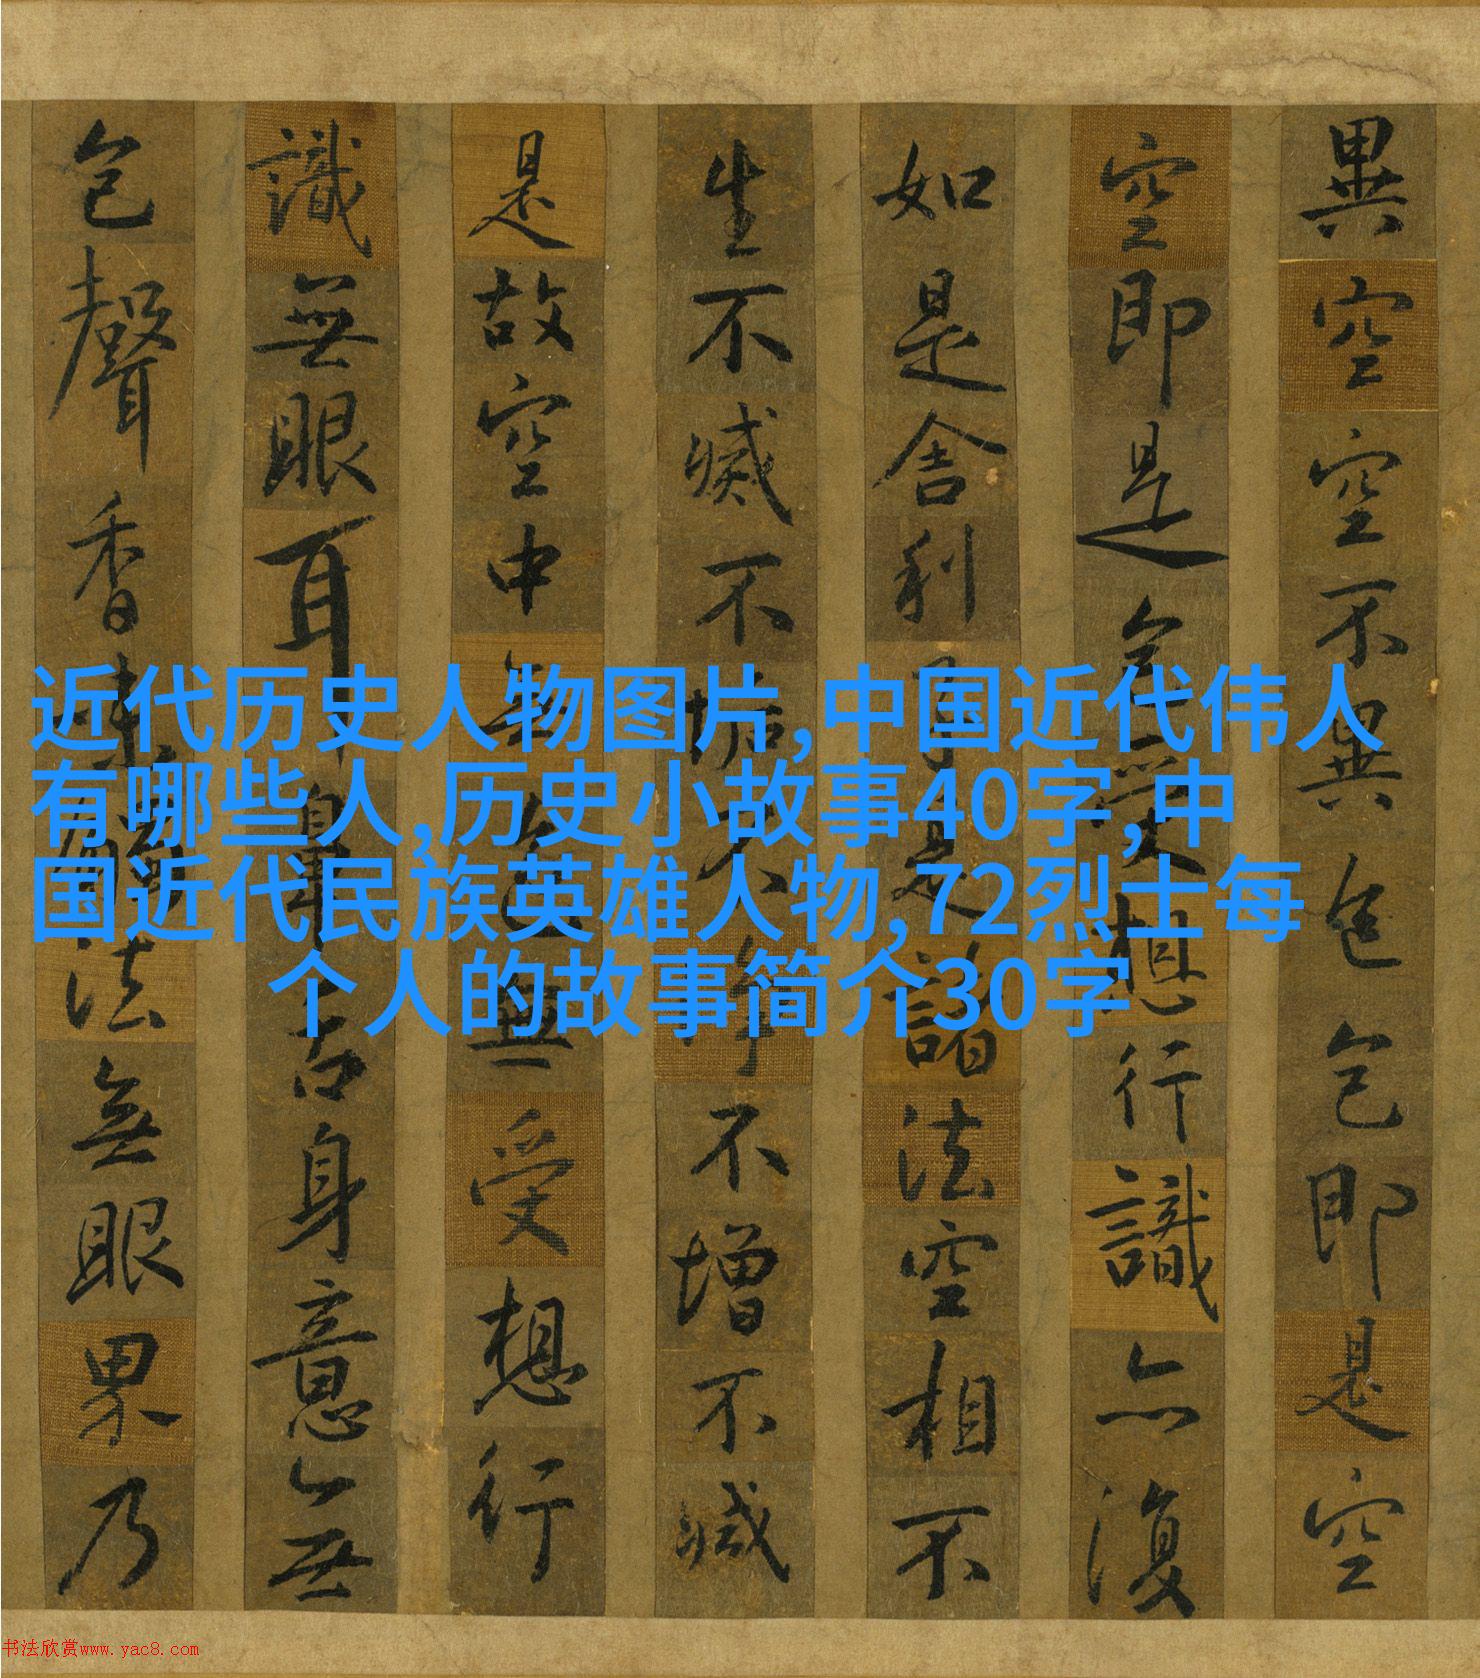 異空空不異色色即是空
空即是色受想行識亦復
如是舍利子是諸法空相不
生不滅不垢不淨不增不減
是故空中無色無受想行
識無眼耳鼻舌身意無
色聲香味觸法無眼界乃
近代历史人物图片,中国近代伟人
有哪些人,历史小故事40字,中
国近代民族英雄人物,72烈士每
个人的故事简介30字
书法欣赏www.yac8.com